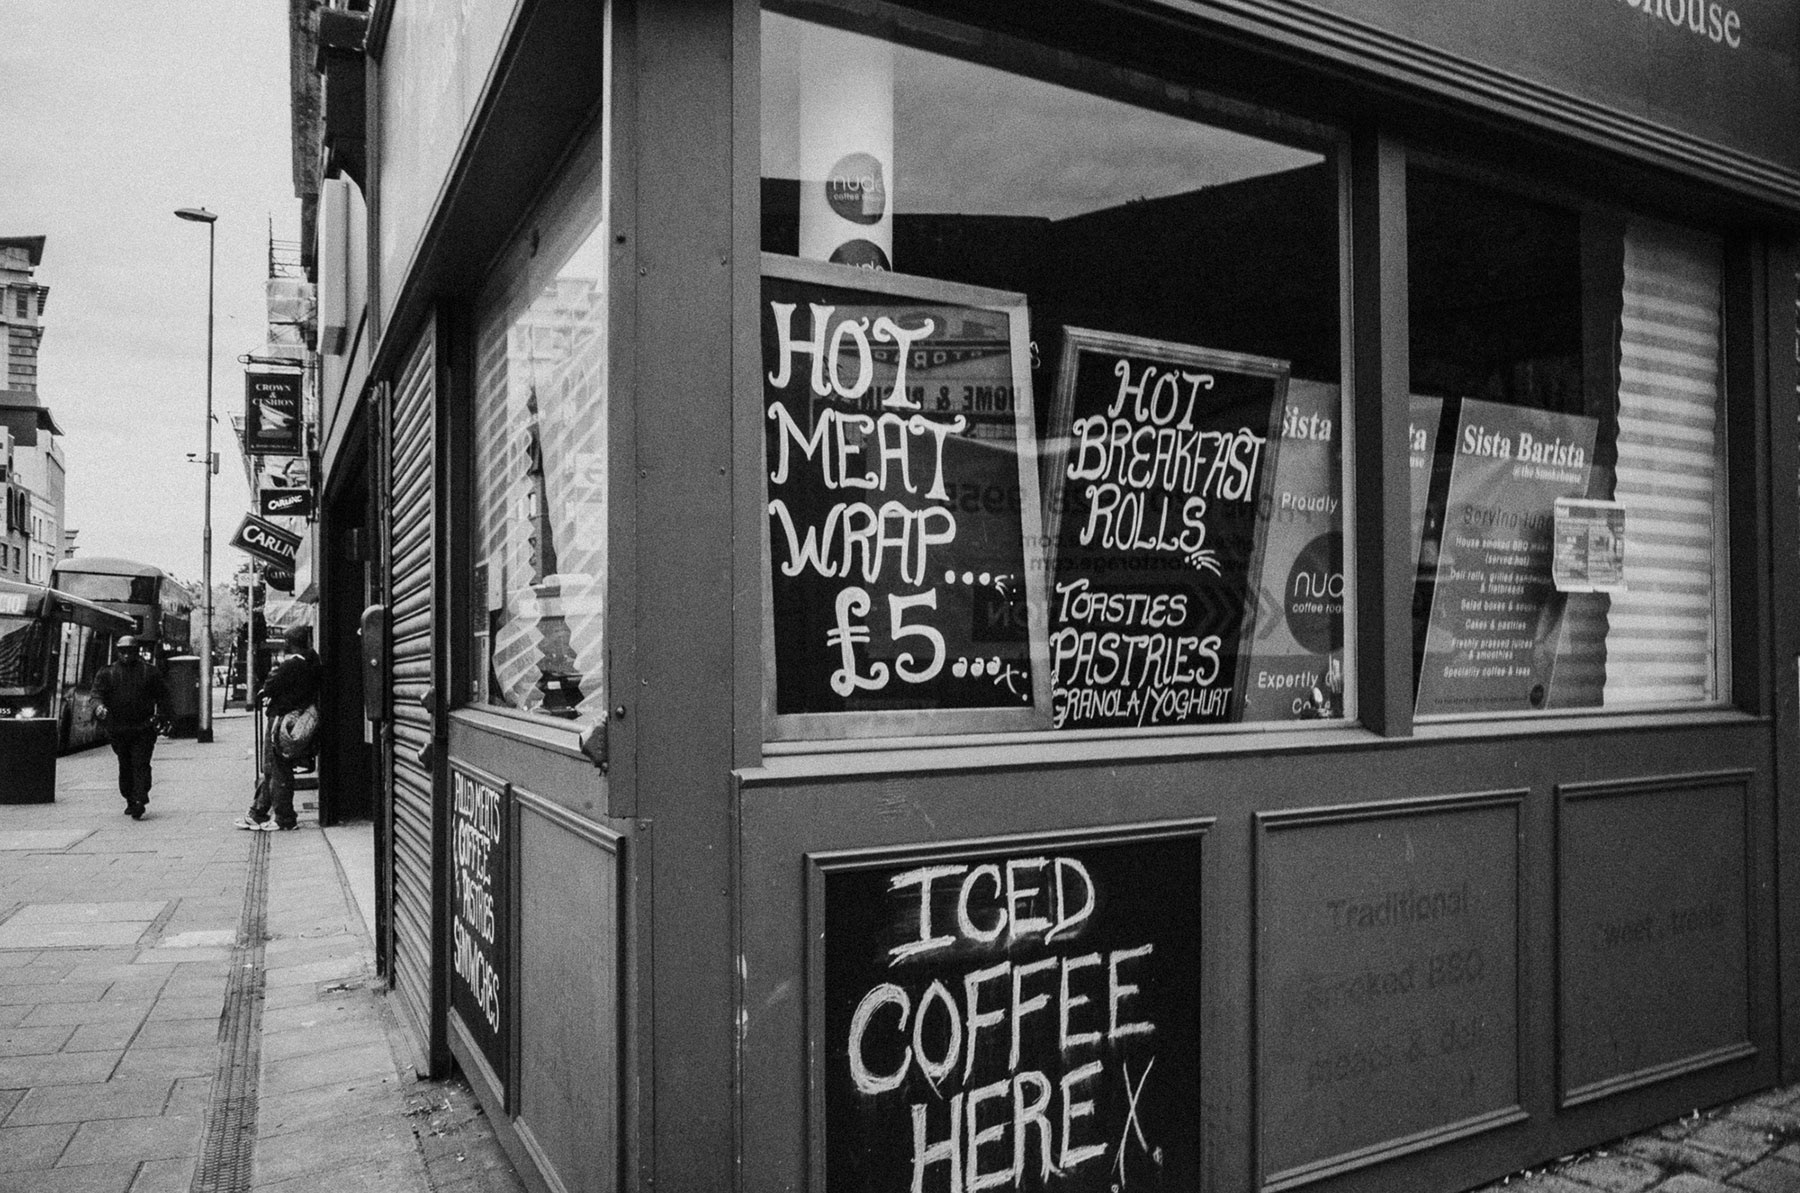 ehouse
CROWN
& CUSHION
CARLING
CARLIN
nude
coffee
nude
HOT
MEAT
WRAP....
£5...x.
HOT
BREAKFAST
ROLLS
TOASTIES
PASTRIES
GRANOLA/YOGHURT
Sista
Proudly
nud
coffee roo
Expertly
ta
Sista Barista
@ the Smokehouse
Serving
House smoked BBQ
(served hot)
Deli rolls, grilled
& flatbreads
Salad boxes &
Cakes & pastries
Freshly pressed juices
& smoothies
Speciality coffee & teas
HOME &
PULLED MEATS
& COFFEE
& PASTRIES
SANDWICHES
ICED
COFFEE
HERE X.
Traditional
BBQ
meats &